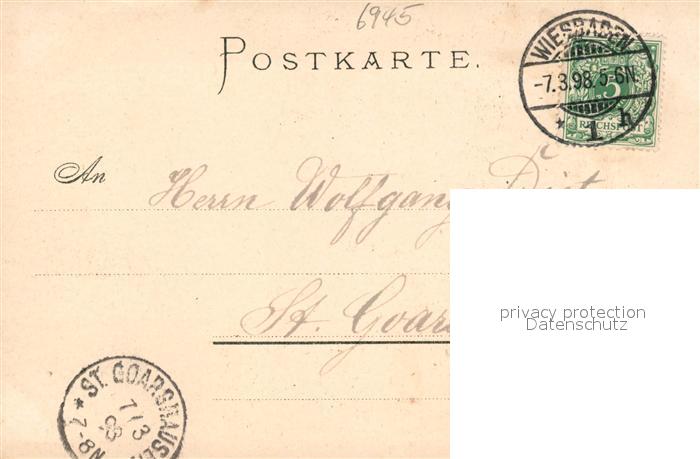 6945
POSTKARTE.
WIESBADEN
-7.3.98.5-6N.
* 1 h
5
REICHSPOST
An
Herrn Wolfgang
St. Goars
privacy protection
Datenschutz
* ST. GOARSHAUSEN
7/3
98
7-8N